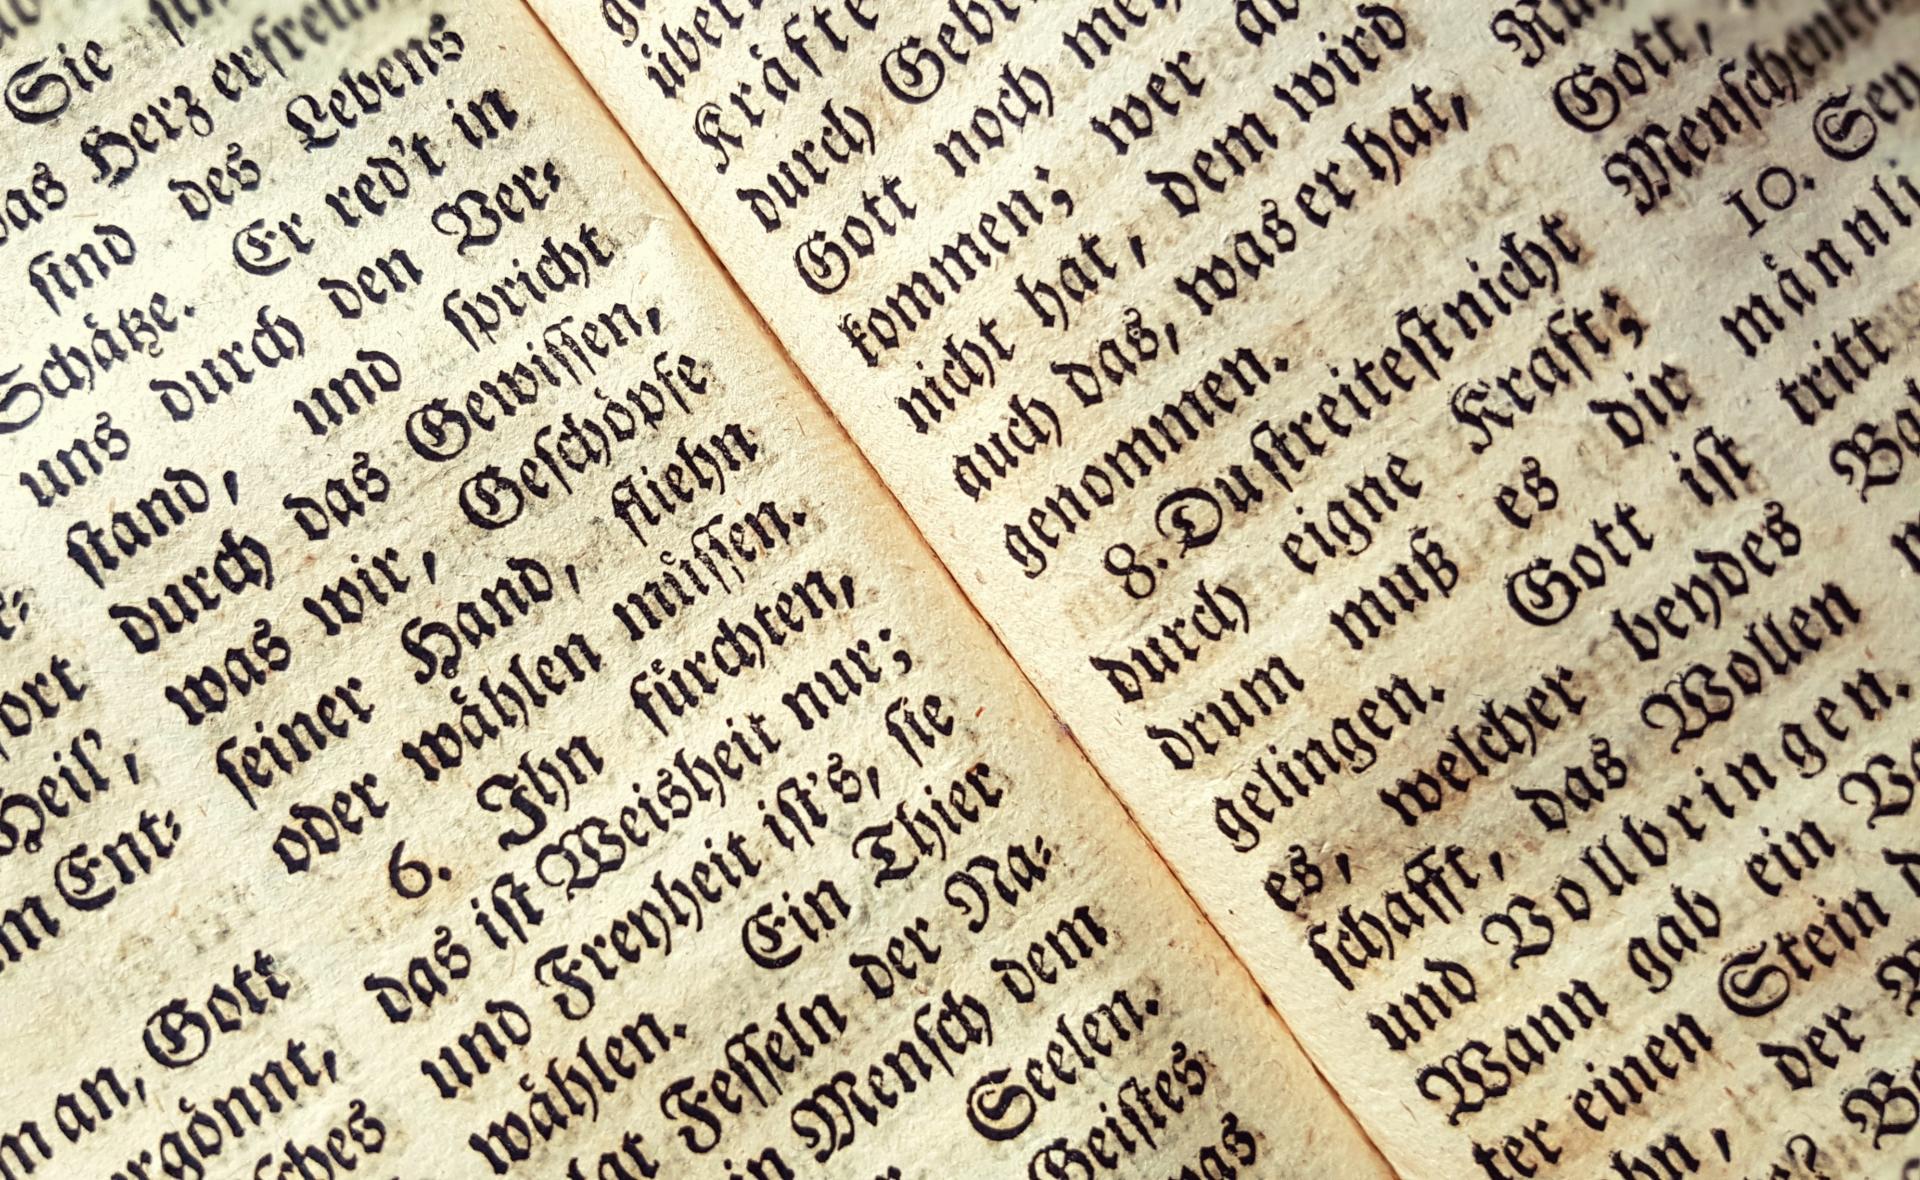 Sie
das Herz erfreun
sind des Lebens
Schätze. Er red't in
uns durch den Ver-
stand, und spricht
durch das Gewissen,
was wir, Geschöpfe
seiner Hand, fliehn
oder wählen müssen.
6. Ihn fürchten,
das ist Weisheit nur;
und Freyheit ist's, sie
wählen. Ein Thier
Fesseln der Na-
Mensch dem
Seelen.
Geistes
Heil',
Ent-
an, Gott
Kräfte
durch
Gott noch
kommen; wer
nicht hat, dem wird
auch das, was er hat,
genommen.
8. Du streitest nicht
durch eigne Kraft;
drum muß es dir
gelingen. Gott ist
es, welcher beydes
schafft, das Wollen
und Vollbringen.
Wann gab ein
einen Stein
der
Gott,
10.
tritt